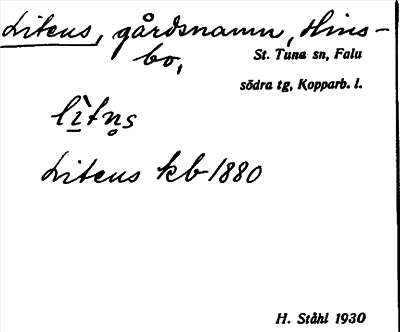 Litens, gårdsnamn, Hins-
bo,
St. Tuna sn, Falu
södra tg, Kopparb. l.
lìtn̥s
Litens kb 1880
H. Ståhl 1930